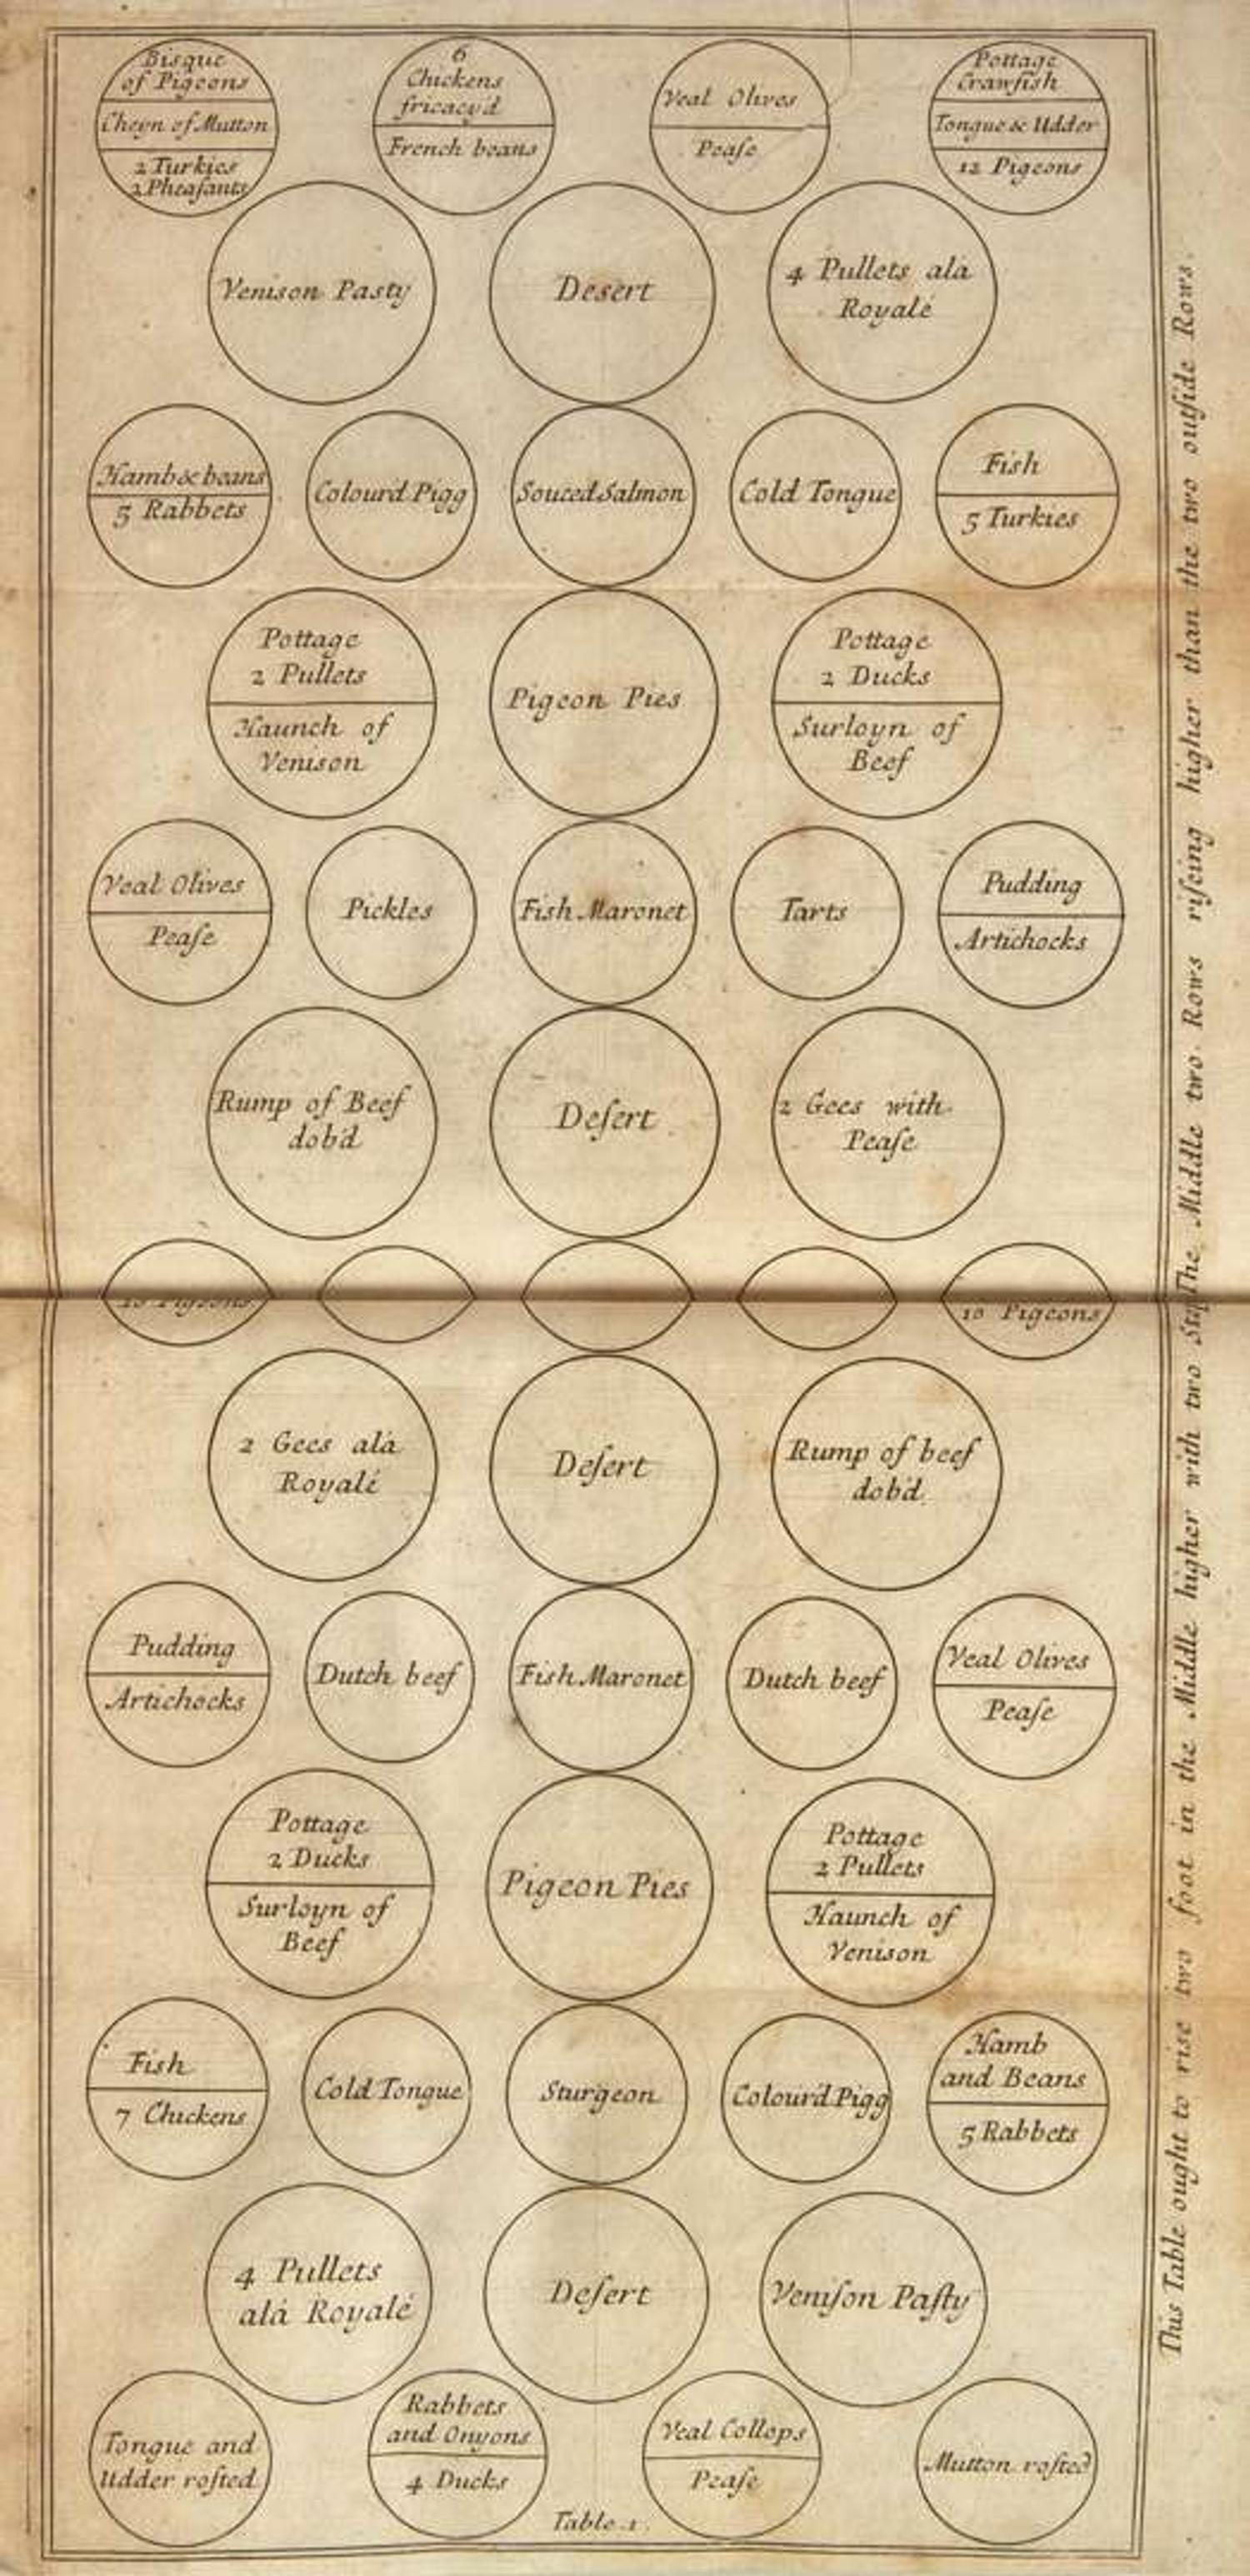 Bisque
of Pigeons
Cheyn of Mutton
2 Turkies
2 Pheaſants
6
Chickens
fricacyd
French beans
Veal Olives
Peaſe
Pottage
Crawfish
Tongue & Udder
12 Pigeons
Venison Pasty
Desert
4 Pullets alá
Royalé
Hamb & beans
5 Rabbets
Colourd Pigg
Souced Salmon
Cold Tongue
Fish
5 Turkies
Pottage
2 Pullets
Haunch of
Venison
Pigeon Pies
Pottage
2 Ducks
Surloyn of
Beef
Veal Olives
Peaſe
Pickles
Fish Maronet
Tarts
Pudding
Artichocks
Rump of Beef
dob'd
Deſert
2 Gees with
Peaſe
Pigeons
10 Pigeons
2 Gees alá
Royalé
Deſert
Rump of beef
dob'd
Pudding
Artichocks
Dutch beef
Fish Maronet
Dutch beef
Veal Olives
Peaſe
Pottage
2 Ducks
Surloyn of
Beef
Pigeon Pies
Pottage
2 Pullets
Haunch of
Venison
Fish
7 Chickens
Cold Tongue
Sturgeon
Colourd Pigg
Hamb
and Beans
5 Rabbets
4 Pullets
alá Royalé
Deſert
Veniſon Paſty
Tongue and
Udder roſted
Rabbets
and Onyons
4 Ducks
Veal Collops
Peaſe
Mutton roſted
Table 1.
This Table ought to rise two foot in the Middle higher with two The Middle two Rows riſeing higher than the two outſide Rows.